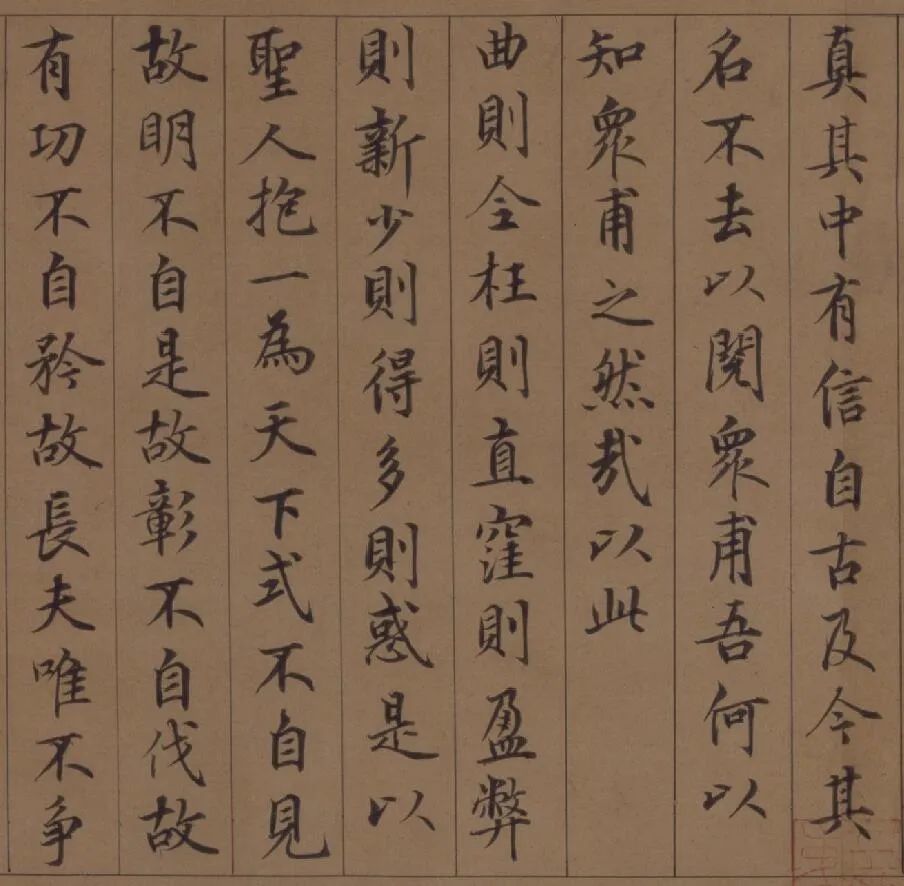 真其中有信自古及今其
名不去以閱衆甫吾何以
知衆甫之然哉以此
曲則全枉則直窪則盈弊
則新少則得多則惑是以
聖人抱一為天下式不自見
故明不自是故彰不自伐故
有功不自矜故長夫唯不争